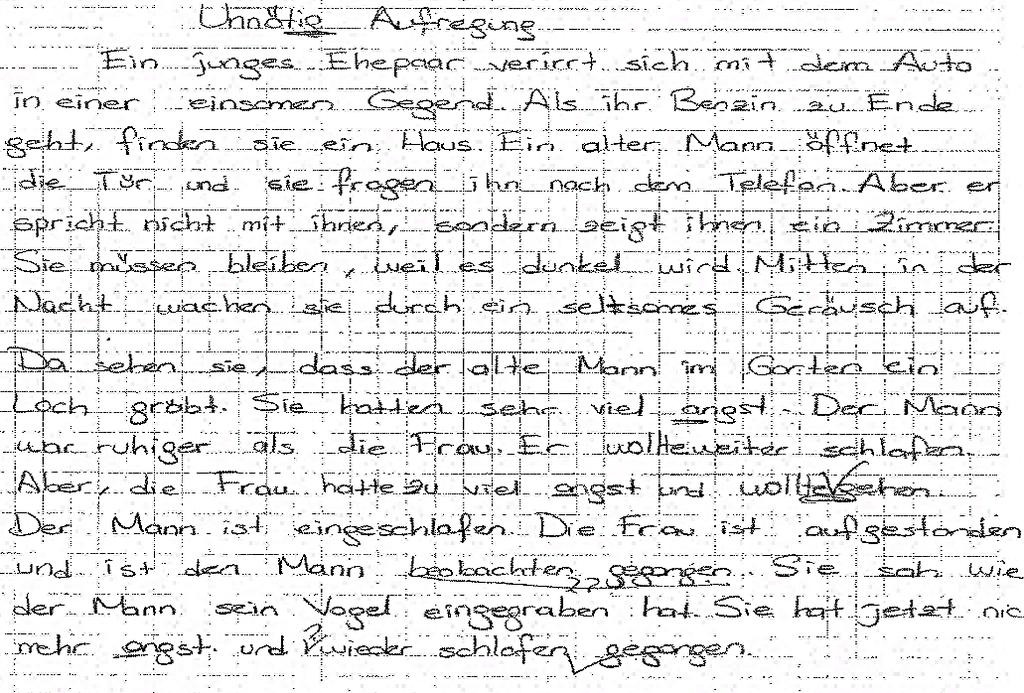 Unnötig Aufregung
Ein junges Ehepaar verirrt sich mit dem Auto
in einer einsamen Gegend. Als ihr Benzin zu Ende
geht, finden sie ein Haus. Ein alter Mann öffnet
die Tür und sie fragen ihn nach dem Telefon. Aber er
spricht nicht mit ihnen, sondern zeigt ihnen ein Zimmer.
Sie müssen bleiben, weil es dunkel wird. Mitten in der
Nacht wachen sie durch ein seltsames Geräusch auf.
Da sehen sie, dass der alte Mann im Garten ein
Loch gräbt. Sie hatten sehr viel angst. Der Mann
war ruhiger als die Frau. Er wollte weiter schlafen.
Aber, die Frau hatte zu viel angst und wollte gehen.
Der Mann ist eingeschlafen. Die Frau ist aufgestanden
und ist den Mann beobachten gegangen. Sie sah wie
der Mann sein Vogel eingegraben hat. Sie hat jetzt nic
mehr angst. und wieder schlafen gegangen.